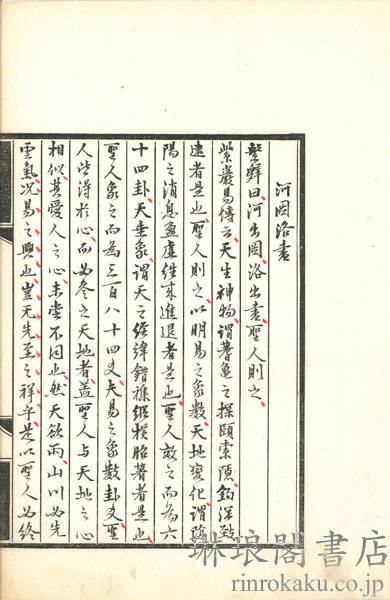 河圖洛書
繫辭曰河出圖洛出書聖人則之
紫巖易傳云天生神物謂蓍龜之探賾索隱鈎深致
遠者是也聖人則之以明易之象數天地變化謂陰
陽之消息盈虛往來進退者是也聖人效之而為六
十四卦天垂象謂天之經緯錯襍縱橫昭著者是也
聖人象之而為三百八十四爻夫易之象數卦爻聖
人皆得於心而必參之天地者蓋聖人與天地之心
相似其愛人之心未嘗不同也然天欲雨山川必先
雲氣況易之興也豈無先至之祥乎是以聖人必終
琳琅閣書店
rinrokaku.co.jp